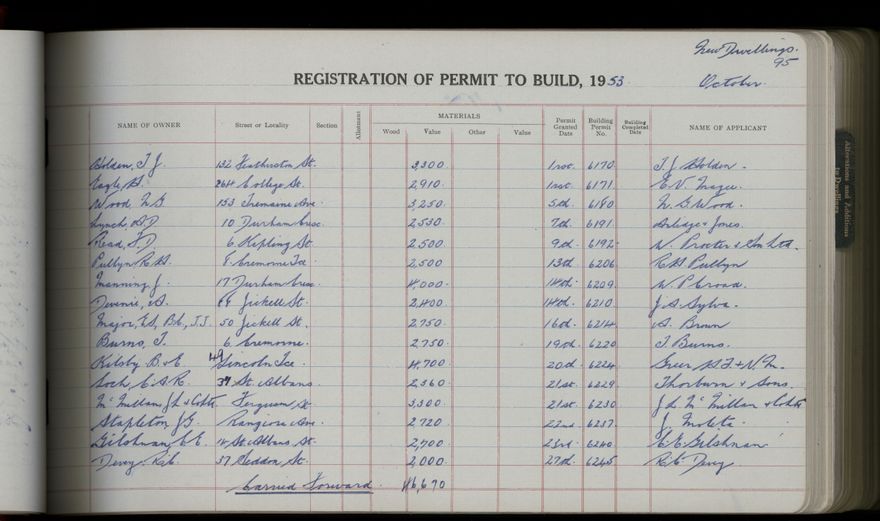 New Dwellings.
95
REGISTRATION OF PERMIT TO BUILD, 1953.
October.
NAME OF OWNER Street or Locality Section Allotment MATERIALS Wood Value Other Value Permit Granted Date Building Permit No. Building Completed Date NAME OF APPLICANT
Holden, T. J. 132 Featherston St. 3,300. 1st. 6170. T. J. Holden.
Eagle, 264 College St. 2,910. 1st. 6171.
Wood N. G 153 Tremaine Ave. 3,250. 5th. 6180 N. G Wood.
Lynch, 10 Durham Cresc. 2,530. 7th. 6191 Arlidge & Jones.
Read, F. D. 6 Kipling St. 2,500 9th. 6192. N. Procter & Son Ltd.
Pullyn, R. H. 8 Cremorne Tce. 2,500 13th 6206 R H Pullyn
Manning J. 17 Durham Cresc. 4,000. 14th. 6209. W P Croad.
Jickell St. 2,400 14th. 6210. J. A. Sylva.
Major, 50 Jickell St. 2,750 16th. 6214. A. Brown
Burns, T. 6 Cremorne. 2,750. 19th. 6220 T. Burns.
Kilsby B. & E. 49 Lincoln Tce. 4,700 20th. 6224 Greer
37 St. Albans. 2,360 21st. 6229 Thorburn & Sons.
McMillan, J L & Ferguson St. 3,300 21st. 6230 J L. McMillan &
Stapleton J G. Rangiora Ave. 2,720 22nd. 6237. J. Moleta.
Gilshnan, C. E. 18 St. Albans St. 2,700 23rd. 6240 C E Gilshnan
Devey. R. C. 37 Seddon St. 2,000 27th. 6245 R. C. Devey
Carried Forward. 46,670
Alterations and Additions to Dwellings